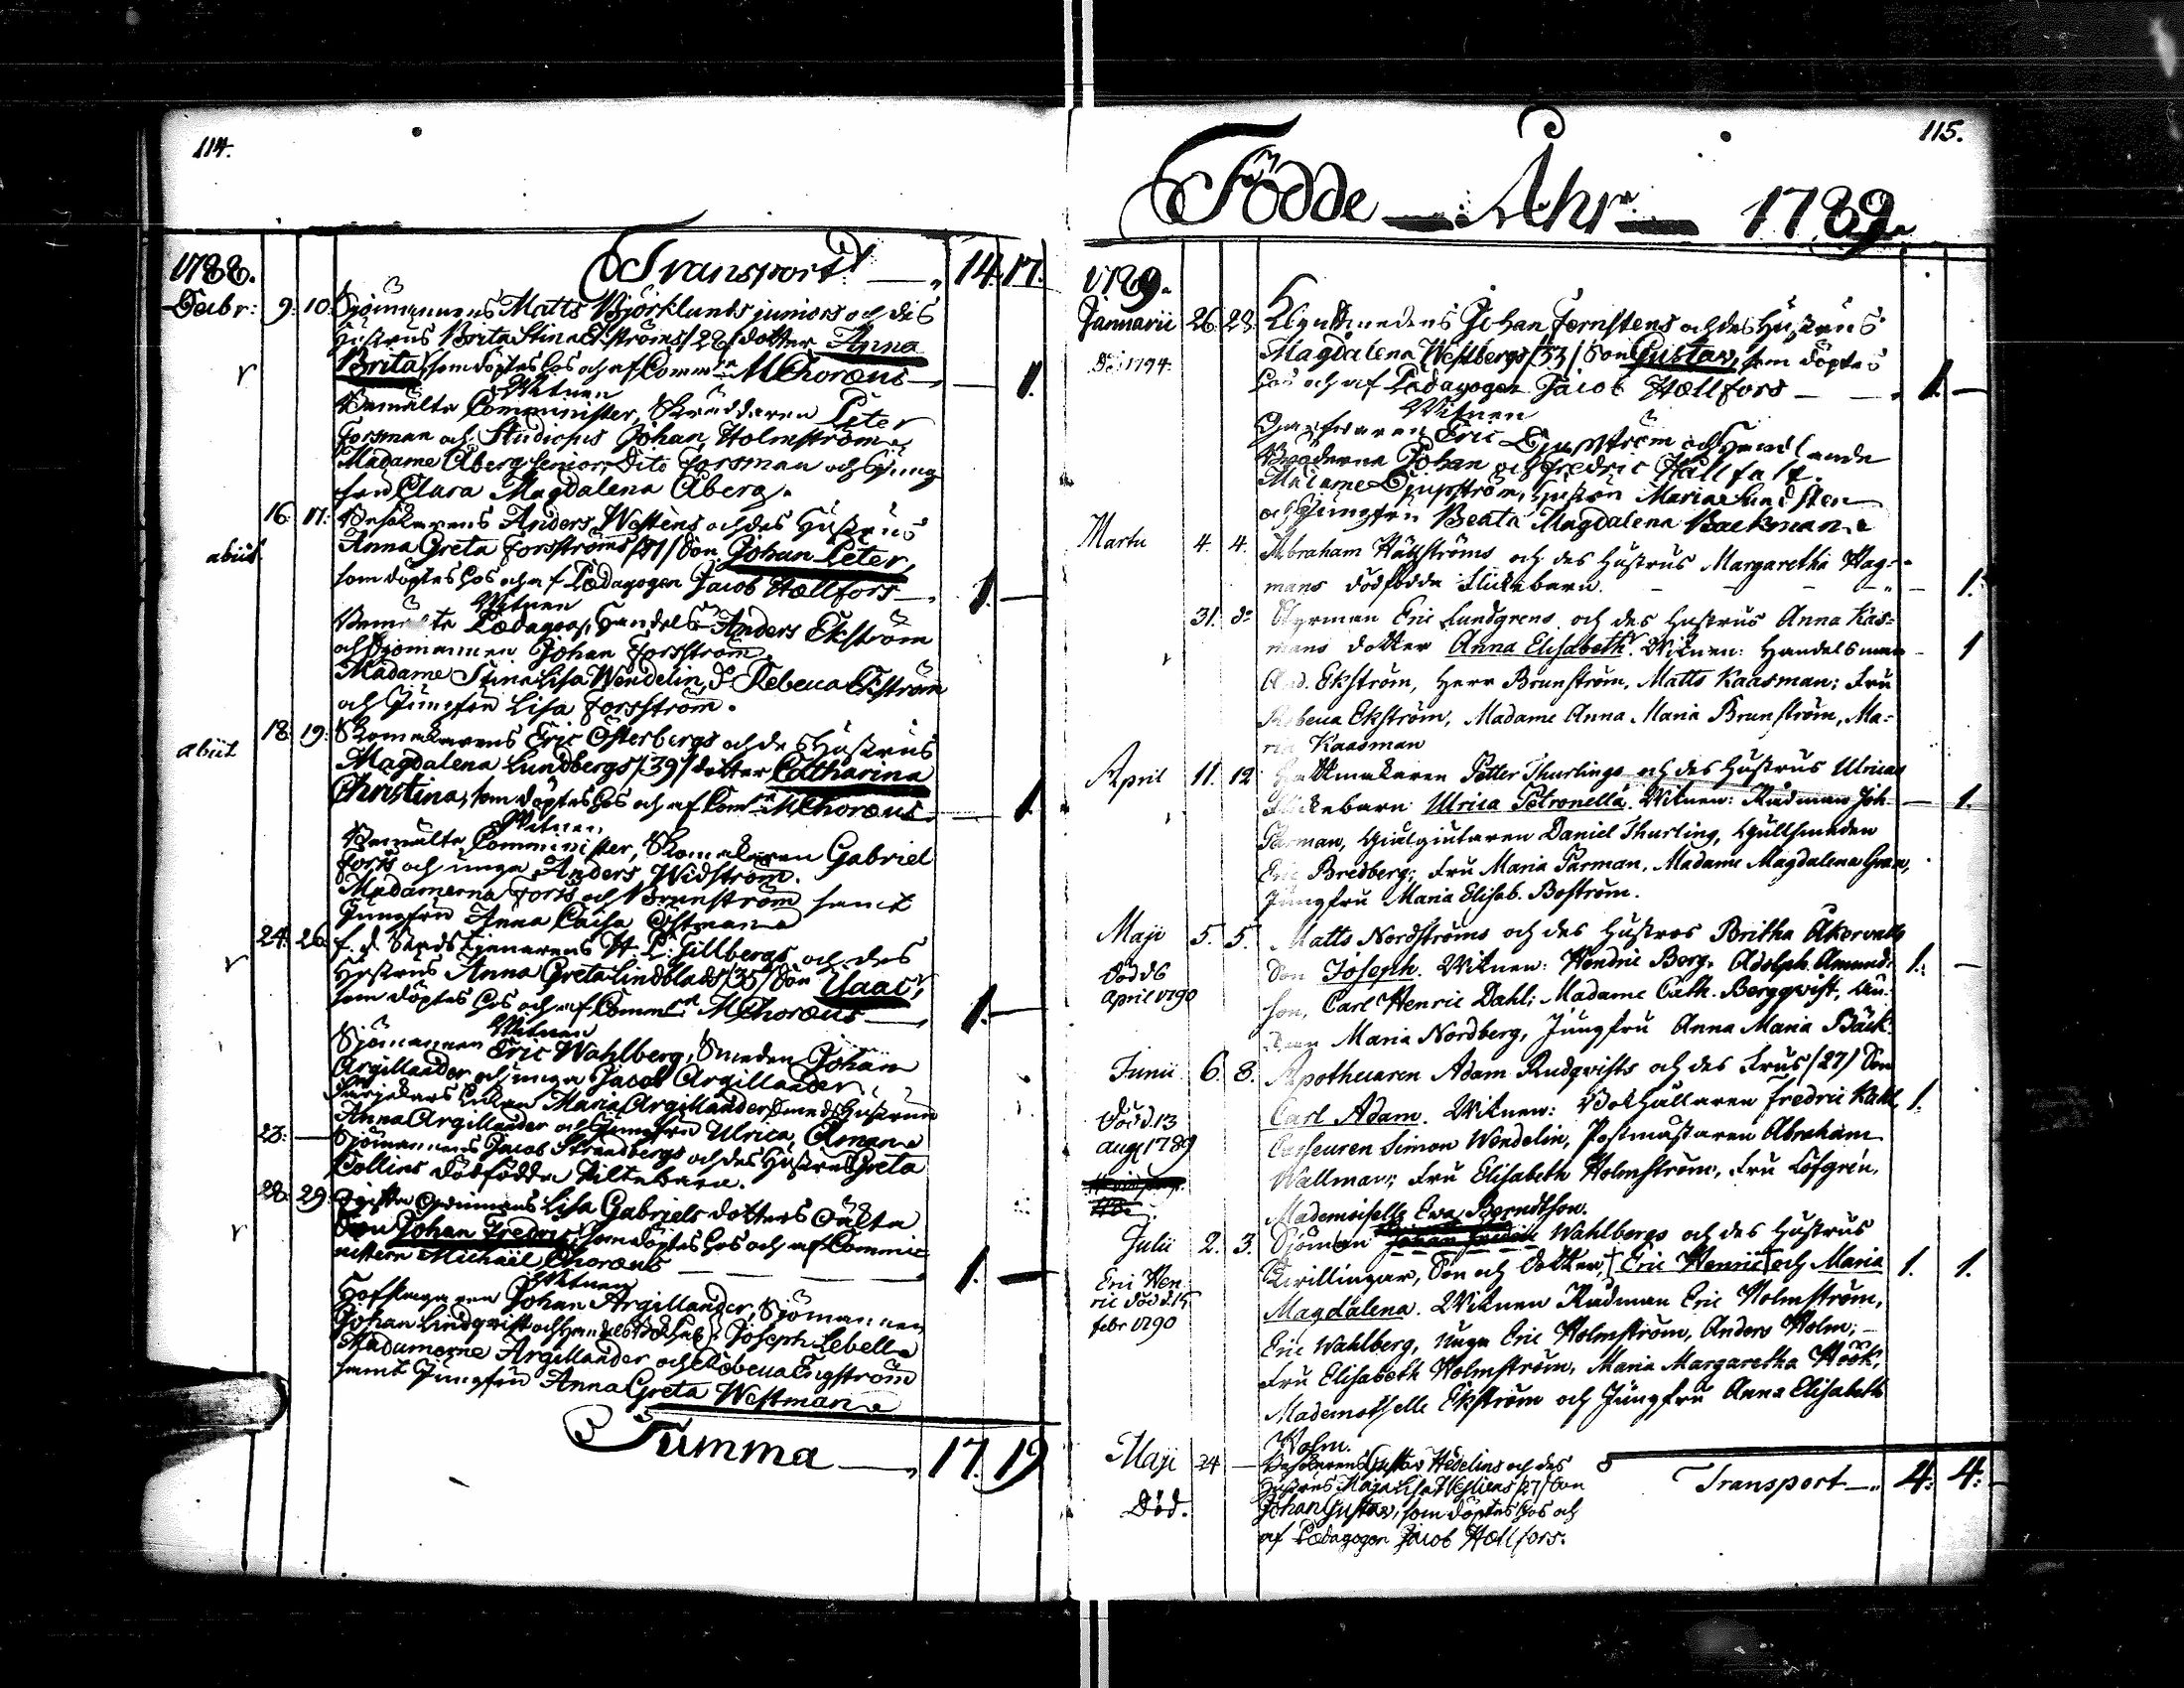 114.
Transport — 14. 17.
1788.
Decbr: 9. 10. Sjömannens Matts Björklunds juniors och des
Hustrus Brita Stina Ekströms /28/ dotter Anna
Brita, som döptes hos och af Comm. M Choræus — — 1.
Witnen
Bemälte Comminister, Skräddaren Peter
Forsman och Studiosus Johan Holmström
Madame Åberg senior, Dito Forsman och Jung-
frun Clara Magdalena Åberg.
16. 17. Besökarens Anders Westens och des Hustrus
abiit Anna Greta Forsströms /37/ Son Johan Peter,
som döptes hos och af Pædagogen Jacob Hællfors — 1. —
Witnen
Pædagog, Handels Anders Ekström
och Sjömannen Johan Forsström.
Madame Stina Lisa Wendelin, d:o Rebecca Ekström
och Jungfru Lisa Forsström.
18. 19. Skomakarens Eric Österbergs och des Hustrus
abiit Magdalena Lundbergs /39/ dotter Catharina
Christina, som döptes hos och af Com. M Choræus — 1.
Witnen
Bemälte Comminister, Skomakaren Gabriel
Forss och unga Anders Widström.
Madamerna Forss och Brunström samt
Jungfru Anna Caisa Östman
24. 26. f. d. Stadstjenarens H. P. Gillbergs och des
Hustrus Anna Greta Lindblads /35/ Son Isaac,
som döptes hos och af Comm. M Choræus — 1. —
Witnen
Sjömannen Eric Wahlberg, Smeden Johan
Argillander och unga Jacob Argillander,
Enkan Maria Argillander Smeds Hustrun
Anna Argillander och Jungfru Ulrica Åman
28. — Sjömannens Jacob Strandbergs och des Hustrus Greta
Collins dödfödda Piltebarn.
28. 29. Ogifta Qvinnans Lisa Gabriels dotters oäkta
Son Johan Fredric, som döptes hos och af Commi-
nistern Michaël Choræus — 1. —
Witnen
Hofslagaren Johan Argillander, Sjömannen
Johan Lindqvist och Handels Bokh. Joseph Lebell
Madamerne Argillander och Rebecca Engström
samt Jungfru Anna Greta Westman
Summa — 17. 19
115.
Födde — Åhr — 1789.
1789.
Januarii 26. 28. Johan Fernstens och des Hustrus
Död 1794. Magdalena Westbergs /33/ Son Gustav, som döptes
hos och af Pædagogen Jacob Hællfors — 1. —
Witnen
Garfvaren Eric Ljungström och Handlande
Bröderne Johan och Fredric Hällfast.
Madame Ljungström, Hustru Maria Lundsten
och Jungfru Beata Magdalena Backman
Martii 4. 4. Abraham Hällströms och des Hustrus Margaretha Hag-
mans dödfödda Flickebarn. — 1.
31. d:o Styrman Eric Lundgrens och des Hustrus Anna Kas-
mans dotter Anna Elisabeth. Witnen: Handelsman — 1
And. Ekström, Herr Brunström, Matts Kaasman; Fru
Rebecca Ekström, Madame Anna Maria Brunström, Ma-
ria Kaasman
April 11. 12 Hattmakaren Petter Thurlings och des Hustrus Ulricas
Flickebarn Ulrica Petronella. Witnen: Rådman Joh. — 1.
Parman, Gjutaren Daniel Thurling, Gullsmeden
Eric Bredberg; Fru Maria Parman, Madame Magdalena Gran,
Jungfru Maria Elisab. Boström.
Maji 5. 5. Matts Nordströms och des Hustros Britha Åkervals
Död 6 Son Joseph. Witnen: Hendric Berg, Adolph Amund- 1. —
April 1790 son, Carl Henric Dahl; Madame Cath. Bergqvist,
Maria Nordberg, Jungfru Anna Maria Bäck
Junii 6. 8. Apothecaren Adam Rudqvists och des Frus /27/ Son
Carl Adam. Witnen: Bokhållaren Fredric Kahl, 1.
Död d. 13
Aug 1789 Casseuren Simon Wendelin, Postmästaren Abraham
Wallman; Fru Elisabeth Holmström, Fru Löfgren,
Mademoiselle Eva Berndtson.
Julii 2. 3. Sjöman Johan Fredric Wahlbergs och des Hustrus
Tvillingar, Son och dotter, Eric Henric och Maria 1. 1.
Eric Hen-
ric död d. 15
febr 1790 Magdalena. Witnen Rådman Eric Holmström,
Eric Wahlberg, Unga Eric Holmström, Anders Holm;
Fru Elisabeth Holmström, Maria Margaretha Höök,
Mademoiselle Ekström och Jungfru Anna Elisabeth
Holm.
Maji 24 — Besökarens Gustav Hedelins och des
Hustrus Maja Lisa /27/ Son
Död. Johan Gustav, som döptes hos och
af Pædagogen Jacob Hællfors.
Transport — 4. 4.